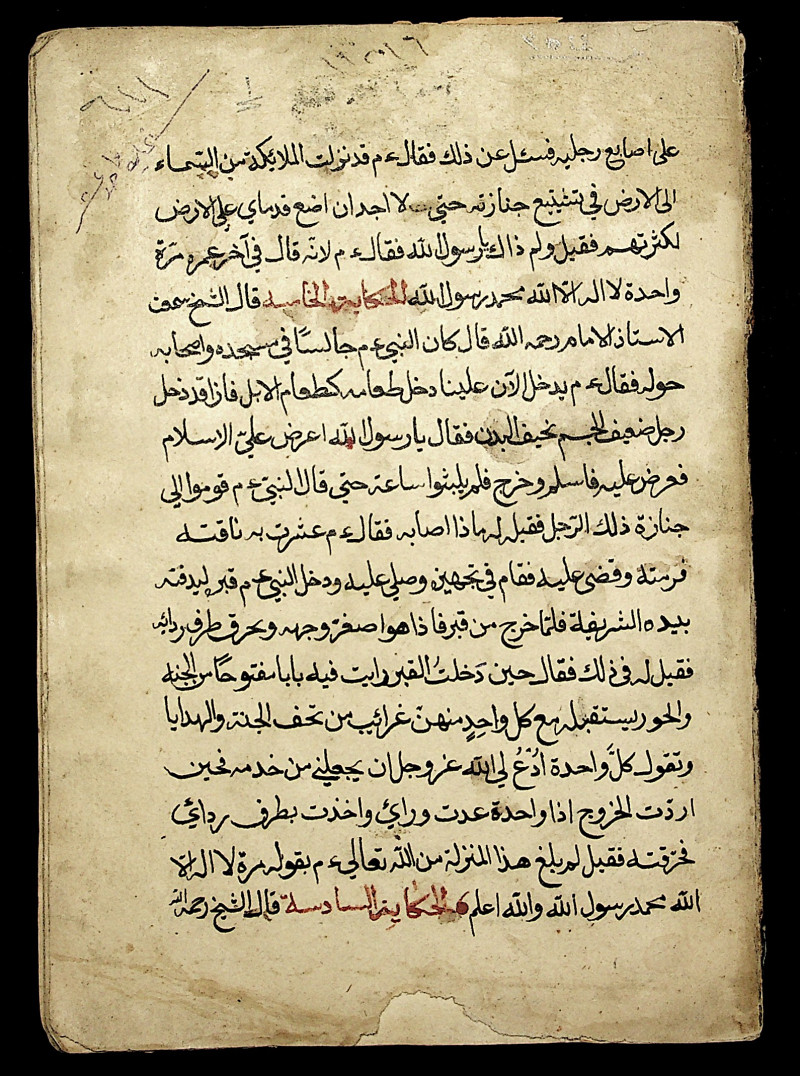 ١٢٥١٦
على اصابع رجليه فسئل عن ذلك فقال ء م قد نزلت الملائكة من السماء
الى الارض في تشييع جنازته حتى لا اجد ان اضع قدماي على الارض
لكثرتهم فقيل ولم ذاك يارسول الله فقال ء م لانه قال في آخر عمره مرّة
واحدة لا اله الا الله محمد رسول الله الحكاية الخامسة قال الشيخ
الاستاذ الامام رحمه الله قال كان النبي ء م جالسًا في مسجده واصحابه
حوله فقال ء م يدخل الآن علينا دخل طعامه كطعام الابل فاذا قد دخل
رجل ضعيف الجسم نحيف البدن فقال يارسول الله اعرض عليّ الاسلام
فعرض عليه فاسلم وخرج فلم يلبثوا ساعة حتي قال النبي ء م قوموا الي
جنازة ذلك الرّجل فقيل له ماذا اصابه فقال ء م عشرت به ناقته
فرمته وقضى عليه فقام في تجهيزه وصلي عليه ودخل النبي ء م قبر ليدفنه
بيده الشريفة فلمّا خرج من قبر فاذا هو اصفرّ وجهه وبحرق طرف ردائه
فقيل له في ذلك فقال حين دَخلتُ القبر رايت فيه بابا مفتوحًا من الجنة
والحور يستقبله مع كل واحدٍ منهنّ غرائب من تحف الجنة والهدايا
وتقول كلّ واحدة اُدْعُ لي الله عز وجل ان يجعلني من خدمه فحين
اردت الخروج اذا واحدة عدت ورائ واخذت بطرف ردائي
فخرّقته فقيل لم بلغ هذا المنزلة من الله تعالي ء م بقوله مرة لا اله الا
الله محمد رسول الله والله اعلم الحكاية السادسة قال الشيخ رحمه الله